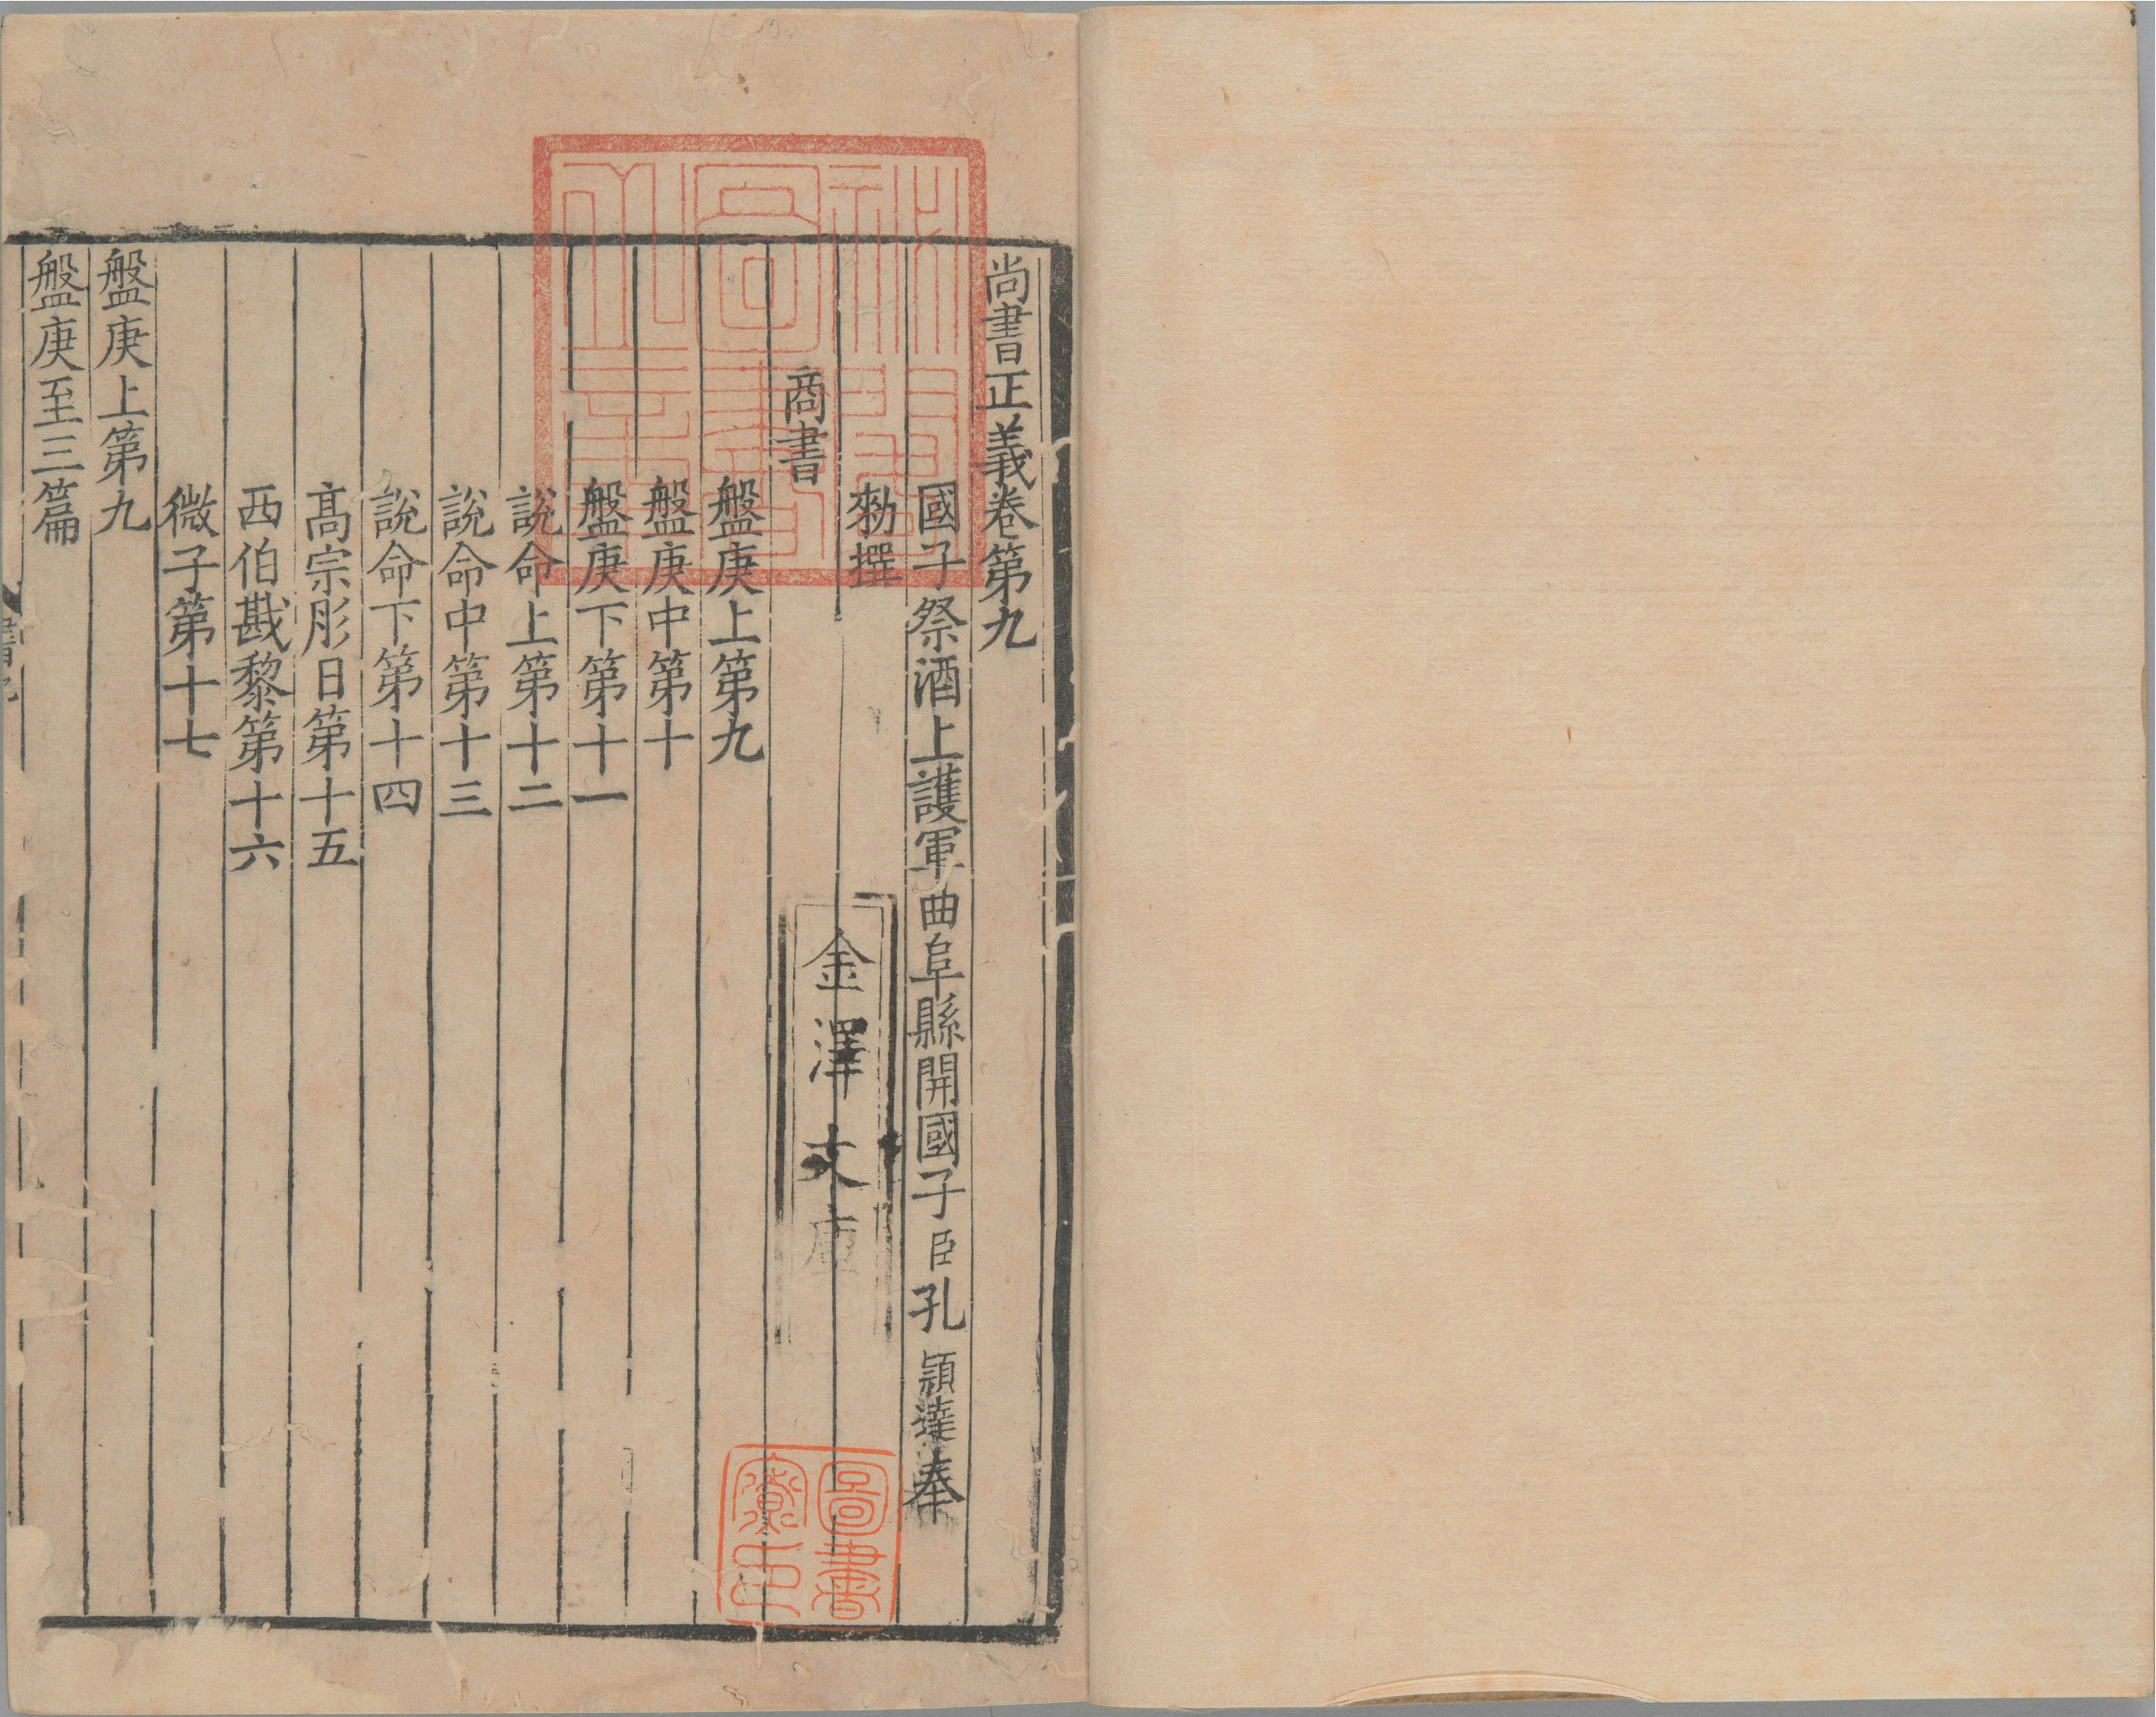 尚書正義卷第九
國子祭酒上護軍曲阜縣開國子臣孔穎達奉
勑撰
商書
盤庚上第九
盤庚中第十
盤庚下第十一
說命上第十二
說命中第十三
說命下第十四
髙宗肜日第十五
西伯戡黎第十六
微子第十七
盤庚上第九
盤庚至三篇
金澤文庫
秘閣圖書之章
圖書寮印